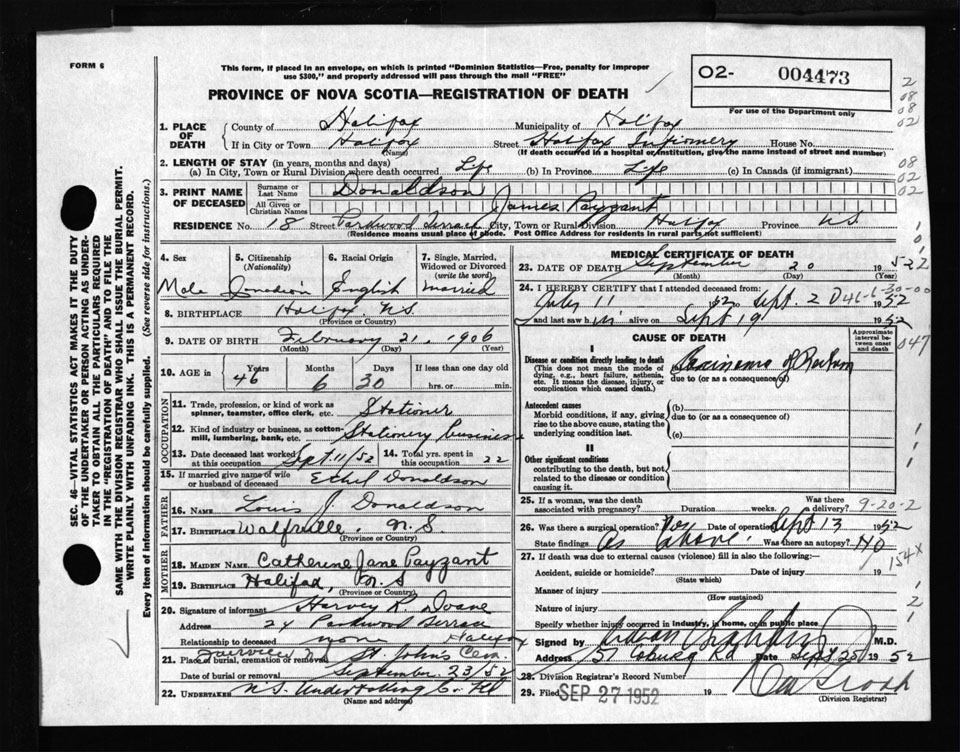 FORM 6
This form, if placed in an envelope, on which is printed "Dominion Statistics—Free, penalty for improper
use $300," and properly addressed will pass through the mail "FREE"
02- 004473
For use of the Department only
PROVINCE OF NOVA SCOTIA—REGISTRATION OF DEATH
2
08
08
02
1. PLACE OF DEATH
County of Halifax Municipality of Halifax
If in City or Town Halifax Street Halifax House No.
(Name) (If death occurred in a hospital or institution, give the name instead of street and number)
2. LENGTH OF STAY (in years, months and days)
(a) In City, Town or Rural Division where death occurred Life (b) In Province Life (c) In Canada (if immigrant)
08
02
02
3. PRINT NAME OF DECEASED
Surname or Last Name Donaldson
All Given or Christian Names James Payzant
RESIDENCE No. 18 Street Parkwood Terrace City, Town or Rural Division Halifax Province N.S.
(Residence means usual place of abode. Post Office Address for residents in rural parts not sufficient)
SEC. 46—VITAL STATISTICS ACT MAKES IT THE DUTY
OF THE UNDERTAKER OR PERSON ACTING AS UNDER-
TAKER TO OBTAIN ALL THE PARTICULARS REQUIRED
IN THE "REGISTRATION OF DEATH" AND TO FILE THE
SAME WITH THE DIVISION REGISTRAR WHO SHALL ISSUE THE BURIAL PERMIT.
WRITE PLAINLY WITH UNFADING INK. THIS IS A PERMANENT RECORD.
Every item of information should be carefully supplied. (See reverse side for instructions.)
4. Sex
Male
5. Citizenship
(Nationality)
Canadian
6. Racial Origin
English
7. Single, Married,
Widowed or Divorced
(write the word)
Married
8. BIRTHPLACE Halifax N.S.
(Province or Country)
9. DATE OF BIRTH February 21, 1906
(Month) (Day) (Year)
10. AGE in 46 Years 6 Months 30 Days If less than one day old
hrs. or min.
OCCUPATION
11. Trade, profession, or kind of work as
spinner, teamster, office clerk, etc. Stationer
12. Kind of industry or business, as cotton-
mill, lumbering, bank, etc. Stationery Business
13. Date deceased last worked
at this occupation Sept 11/52
14. Total yrs. spent in
this occupation 22
15. If married give name of wife
or husband of deceased Ethel Donaldson
FATHER
16. Name Louis J. Donaldson
17. Birthplace Wolfville, N.S.
(Province or Country)
MOTHER
18. MAIDEN NAME Catherine Jane Payzant
19. BIRTHPLACE Halifax, N.S
(Province or Country)
20. Signature of informant Harvey R. Doane
Address 24 Parkwood Terrace
Relationship to deceased none Halifax
21. Place of burial, cremation or removal Fairview St. John's Cem.
Date of burial or removal September 23/52
22. UNDERTAKER N.S. Undertaking Co.
(Name and address)
MEDICAL CERTIFICATE OF DEATH
23. DATE OF DEATH September 20 1952
(Month) (Day)
24. I HEREBY CERTIFY that I attended deceased from:
July 11 52 Sept. 2 1952
and last saw him alive on Sept 19 1952
CAUSE OF DEATH
Approximate
interval be-
tween onset
and death
047
I
Disease or condition directly leading to death
(This does not mean the mode of
dying, e.g., heart failure, asthenia,
etc. It means the disease, injury, or
complication which caused death.)
Carcinoma of Rectum
due to (or as a consequence of)
Antecedent causes
Morbid conditions, if any, giving
rise to the above cause, stating the
underlying condition last.
(b)
due to (or as a consequence of)
(c)
II
Other significant conditions
contributing to the death, but not
related to the disease or condition
causing it.
25. If a woman, was the death
associated with pregnancy? Duration weeks. Was there
a delivery?
9-20-2
26. Was there a surgical operation? Yes Date of operation Sept 13 1952
State findings As above. Was there an autopsy? No
154X
27. If death was due to external causes (violence) fill in also the following:—
Accident, suicide or homicide? Date of injury 19
(State which)
Manner of injury
(How sustained)
Nature of injury
Specify whether injury occurred in industry, in home, or in public place
Signed by M.D.
Address 51 Coburg Rd Date Sept 25 1952
28. Division Registrar's Record Number
29. Filed SEP 27 1952 19
(Division Registrar)